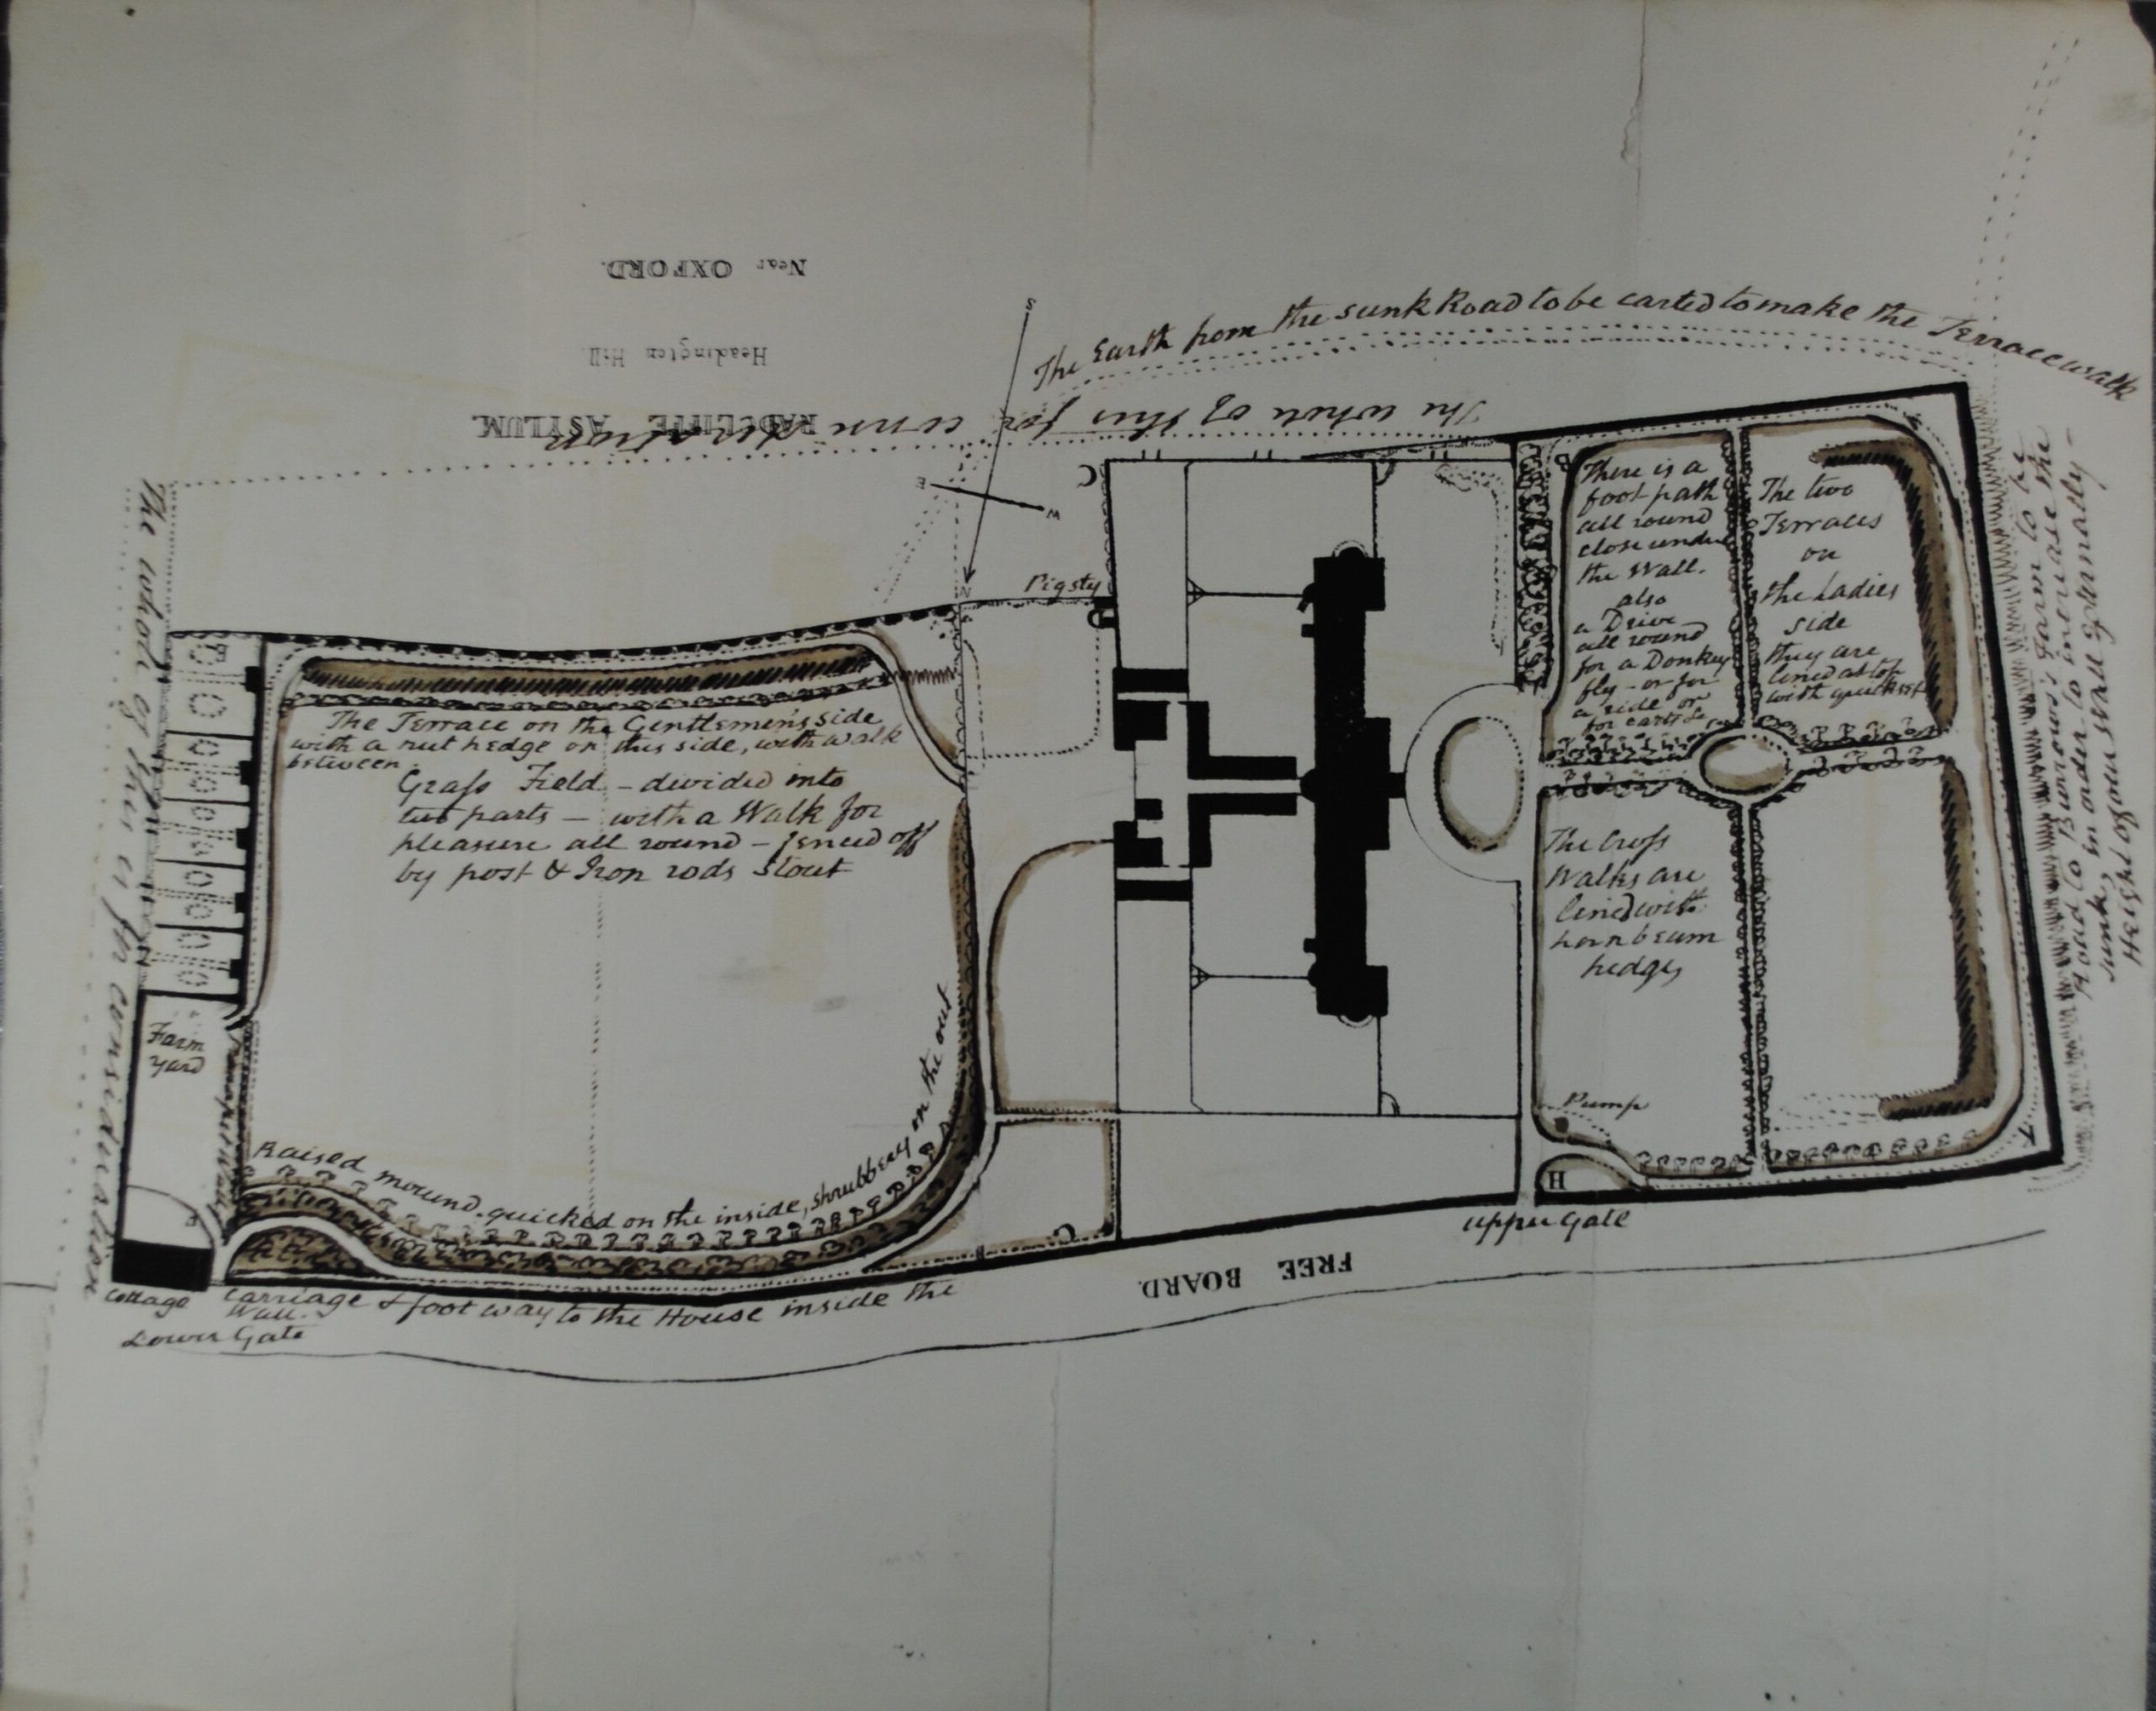 RADCLIFFE ASYLUM.
Headington Hill.
Near OXFORD.
The Earth from the sunk Road to be carted to make the Terrace walk
The whole of this is for consideration
The whole of this for
S
N
E
W
C
Pigsty
B
There is a
foot path
all round
close under
the Wall.
also
a Drive
all round
for a Donkey
fly - or for
a ride or
for carts &c
The two
Terraces
on
the Ladies
side
they are
lined at top
with quickset
Road to Burrows's Farm to be
sunk, in order to increase the
Height of our wall externally -
The Terrace on the Gentlemen's side
with a nut hedge on this side, with walk
between.
Grass Field - divided into
two parts - with a Walk for
pleasure all round - fenced off
by post & Iron rods stout
The Cross
Walks are
lined with
hornbeam
hedges
Farm
yard
Raised mound, quicked on the inside, shrubbery on the out
Pump
H
upper Gate
C
FREE BOARD.
Cottage
Carriage & foot way to the House inside the
Wall.
Lower Gate